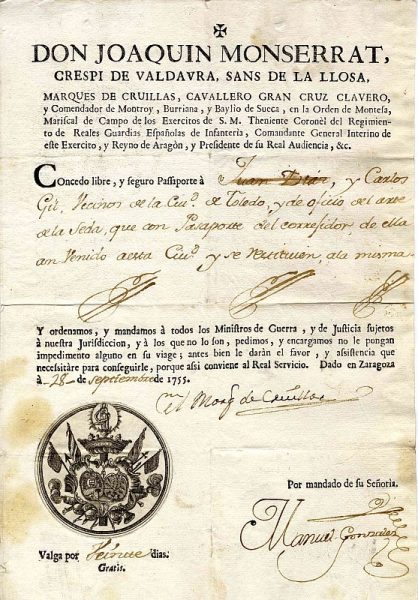 DON JOAQUIN MONSERRAT,
CRESPI DE VALDAVRA, SANS DE LA LLOSA,
MARQUES DE CRUILLAS, CAVALLERO GRAN CRUZ CLAVERO,
y Comendador de Montroy, Burriana, y Baylio de Sueca, en la Orden de Montesa,
Mariscal de Campo de los Exercitos de S. M. Theniente Coronèl del Regimiento
de Reales Guardias Españolas de Infanteria, Comandante General Interino de
este Exercito, y Reyno de Aragòn, y Presidente de su Real Audiencia, &c.
Concedo libre, y seguro Passaporte à Juan y Carlos
Gil, Vecinos de la Ciu.d de Toledo, y de oficio del arte
de la Seda, que con Pasaporte del corregidor de ella
an Venido a esta Ciu.d y se restituien, a la misma
Y ordenamos, y mandamos à todos los Ministros de Guerra, y de Justicia sujetos
à nuestra Jurisdiccion, y à los que no lo son, pedimos, y encargamos no le pongan
impedimento alguno en su viage; antes bien le daràn el favor, y assistencia que
necessitàre para conseguirle, porque assi conviene al Real Servicio. Dado en Zaragoza
à 28 de septiembre de 1755.
el Marq.s de Cruillas
Por mandado de su Señoria.
Manuel Gonzalez
Valga por Veinte dias.
Gratis.